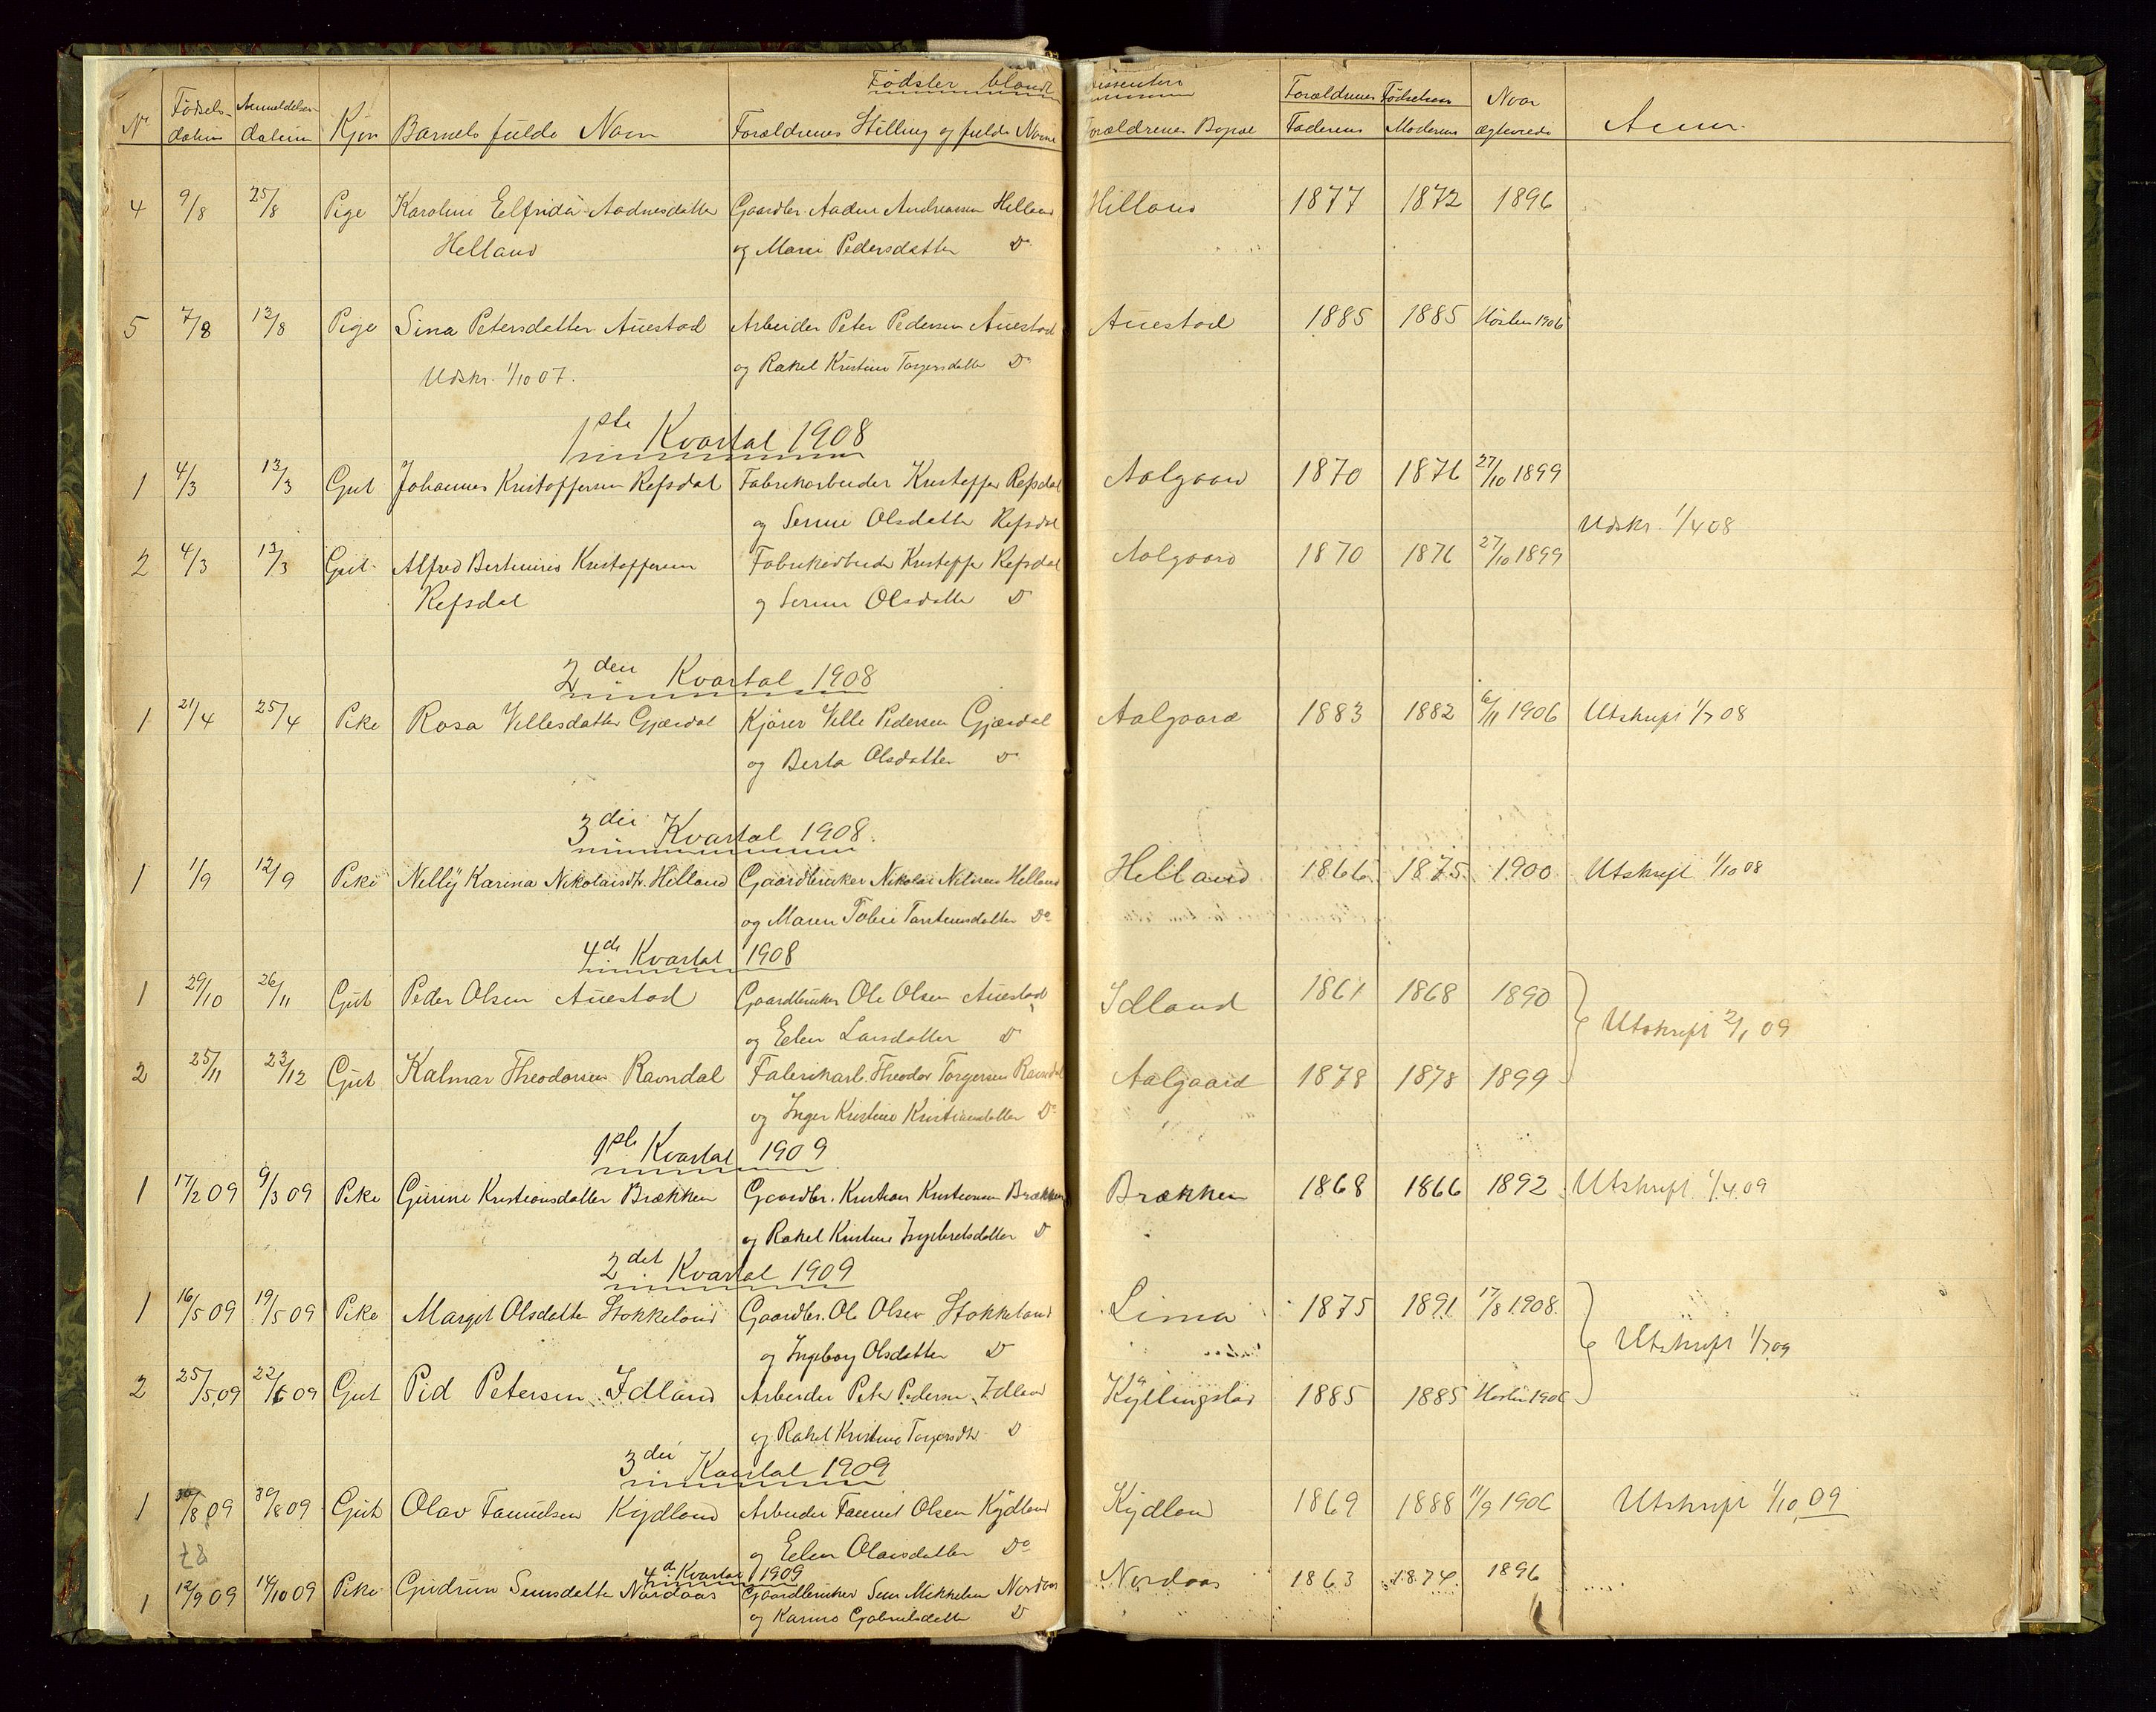 Fødsler blandt Dissentere
N° Fødsels- Anmeldelses- Kjøn Barnets fulde Navn Forældrenes Stilling og fulde Navne Forældrenes Bopæl Forældrenes Fødselsaar Naar Anm.
datum datum Faderens Moderens ægteviede
4 9/8 25/8 Pige Karoline Elfrida Aadnesdatter Gaardbr. Aadne Andreassen Helland Helland 1877 1872 1896
Helland og Marie Pedersdatter D°
5 7/8 12/8 Pige Sina Petersdatter Auestad Arbeider Peter Pedersen Auestad Auestad 1885 1885 Høsten 1906
Udskr. 1/10 07. og Rakel Kristine Torgersdatter D°
1ste Kvartal 1908
1 4/3 13/3 Gut Johannes Kristoffersen Refsdal Fabrikarbeider Kristoffer Refsdal Aalgaard 1870 1876 27/10 1899
og Serine Olsdatter Refsdal Udskr. 1/4 08
2 4/3 13/3 Gut Alfred Bertinius Kristoffersen Fabrikarbeider Kristoffer Refsdal Aalgaard 1870 1876 27/10 1899
Refsdal og Serine Olsdatter D°
2den Kvartal 1908
1 21/4 25/4 Pike Rosa Villesdatter Gjæsdal Kjører Ville Pedersen Gjæsdal Aalgaard 1883 1882 6/11 1906 Utskrift 1/7 08
og Berta Olsdatter D°
3die Kvartal 1908.
1 1/9 12/9 Pike Nelly Karina Nikolaisdtr. Helland Gaardbruker Nikolai Nilsen Helland Helland 1866 1875 1900 Utskrift 1/10 08
og Maren Tobie Torstensdatter D°
4de Kvartal 1908
1 29/10 26/11 Gut Peder Olsen Auestad Gaardbruker Ole Olsen Auestad Idland 1861 1868 1890
og Elen Larsdatter D° Utskrift 2/1 09
2 25/11 23/12 Gut Kalmar Theodorsen Ravndal Fabrikarb. Theodor Torgersen Ravndal Aalgaard 1878 1878 1899
og Inger Kristine Kristiansdatter D°
1ste Kvartal 1909
1 17/2 09 9/3 09 Pike Gurine Kristiansdatter Brækken Gaardbr. Kristian Kristiansen Brækken Brækken 1868 1866 1892 Utskrift 1/4 09
og Rakel Kristine Ingebretsdatter D°
2det Kvartal 1909
1 16/5 09 19/5 09 Pike Margit Olsdatter Stokkeland Gaardbr. Ole Olsen Stokkeland Lima 1875 1891 17/8 1908
og Ingeborg Olsdatter D° Utskrift 1/7 09
2 25/5 09 22/6 09 Gut Pid Petersen Idland Arbeider Peter Pedersen Idland Kyllingstad 1885 1885 Høsten 1906
og Rakel Kristine Torgersdtr. D°
3die Kvartal 1909
1 30/8 09 30/8 09 Gut Olav Tannilsen Kydland Arbeider Tannel Olsen Kydland Kydland 1869 1888 11/9 1906 Utskrift 1/10 09
og Elen Olausdatter D°
4de Kvartal 1909
1 12/9 09 14/10 09 Pike Gudrun Semsdatter Nordaas Gaardbruker Sem Mikkelsen Nordaas Nordaas 1863 1874 1896
og Karine Gabrielsdatter D°